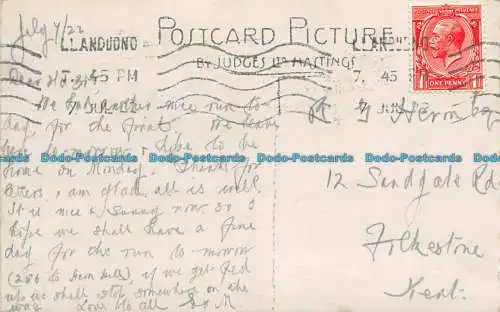 July 7/22
POSTCARD PICTURE
BY JUDGES LTD HASTINGS
LLANDUDNO
7. 45 PM
7 JULY 22
LLANDUDNO
7. 45 PM
7 JUL
ONE PENNY
Dear
We had a nice run to-
day for the first We leave
here to-morrow & hope to be
home on Monday. Thanks for
letters, I am glad all is well.
It is nice & sunny now so I
hope we shall have a fine
day for the run to-morrow
(230 to ), if we get fed
up we shall stop somewhere on the
way. Love to all
12 Sandgate Rd
Folkestone
Kent.
Dodo-Postcards Dodo-Postcards Dodo-Postcards Dodo-Postcards Dodo-Postcards